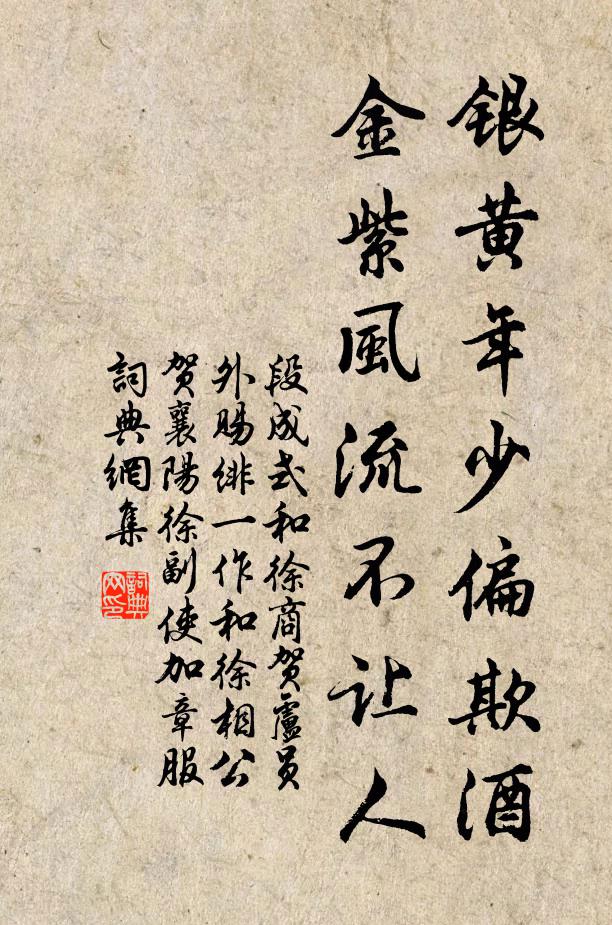 银黄年少偏欺酒
金紫風流不让人
段成式和徐商贺盧员
外赐绯一作和徐相公
贺襄陽徐副使加章服
詞典網集
詞典
网印